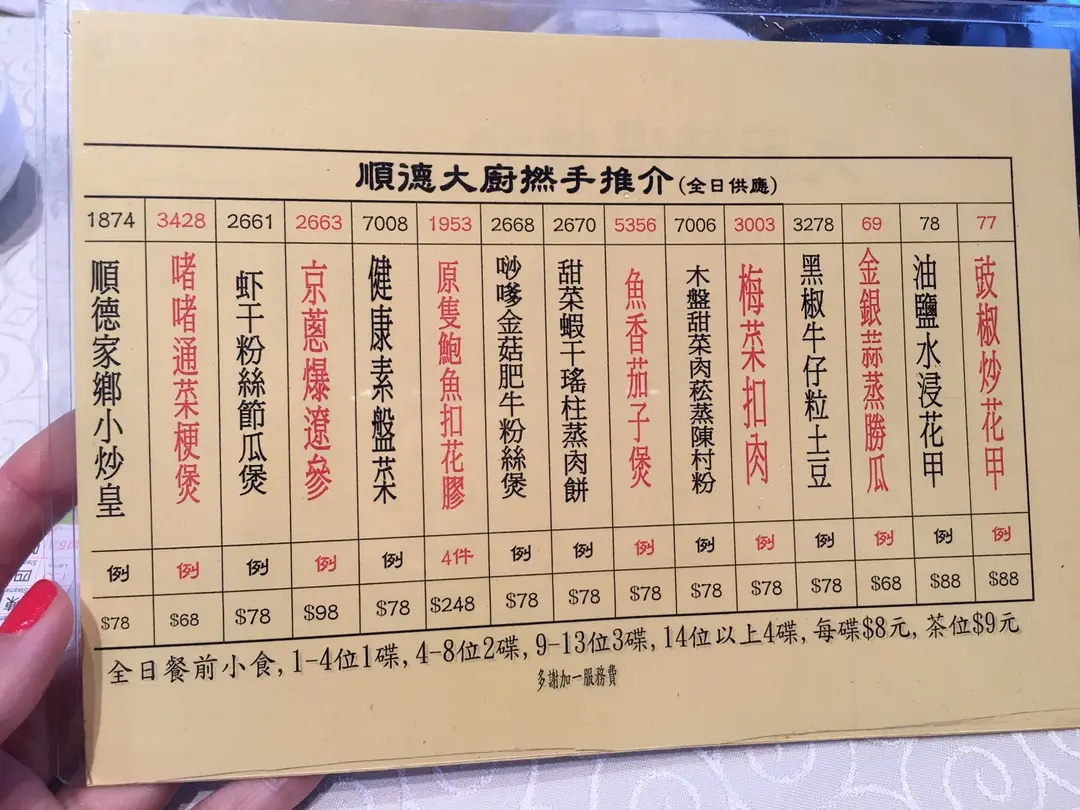 順德大廚撚手推介(全日供應)
1874 3428 2661 2663 7008 1953 2668 2670 5356 7006 3003 3278 69 78 77
順德家鄉小炒皇
啫啫通菜梗煲
虾干粉絲節瓜煲
京蔥爆遼參
健康素盤菜
原隻鮑魚扣花膠
唦嗲金菇肥牛粉絲煲
甜菜蝦干瑤柱蒸肉餅
魚香茄子煲
木盤甜菜肉菘蒸陳村粉
梅菜扣肉
黑椒牛仔粒土豆
金銀蒜蒸勝瓜
油鹽水浸花甲
豉椒炒花甲
例 例 例 例 例 4件 例 例 例 例 例 例 例 例 例
$78 $68 $78 $98 $78 $248 $78 $78 $78 $78 $78 $78 $68 $88 $88
全日餐前小食,1-4位1碟,4-8位2碟,9-13位3碟,14位以上4碟,每碟$8元,茶位$9元
多謝加一服務費